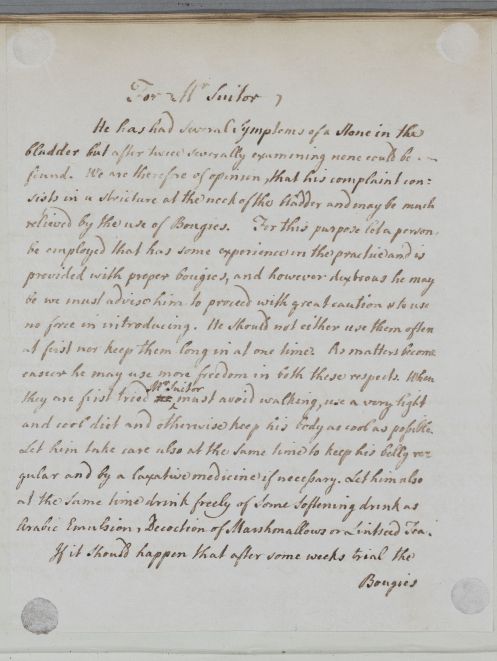 For Mr Suitor
He has had Several Symptoms of a Stone in the
bladder but after twice severally examining none could be
found. We are therefre of opinion, that his complaint con:
sists in a stricture at the neck of the bladder and may be much
relieved by the use of Bougies. For this purpose let a person
be employed that has some experience in the practice and is
provided with proper bougies, and however dextrous he may
be we must advise him to proceed with great caution & to use
no force in introducing. He should not either use them often
at first nor keep them long in at one time. As matters become
easier he may use more freedom in both these respects. When
they are first tried Mr Suitor must avoid walking, use a very light
and cool diet and otherwise keep his body as cool as possible.
Let him take care also at the same time to keep his belly re:
gular and by a laxative medicine if necessary. Let him also
at the same time drink freely of Some Softening drink as
Arabic Emulsion, Decoction of Marshmallows or Lintseed Tea.
If it should happen that after some weeks trial the
Bougies